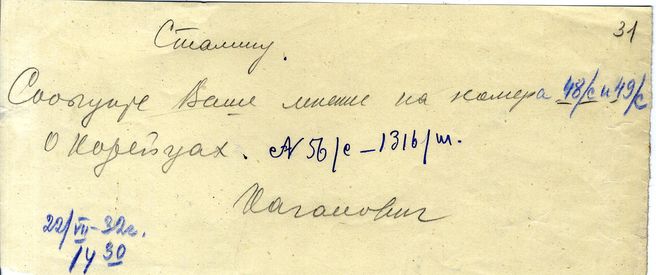 31
Сталину.
Сообщите Ваше мнение на номера 48/с и 49/с
о Корейцах. N 56/с – 1316/ш.
Каганович
22/VII–32г.
14 30